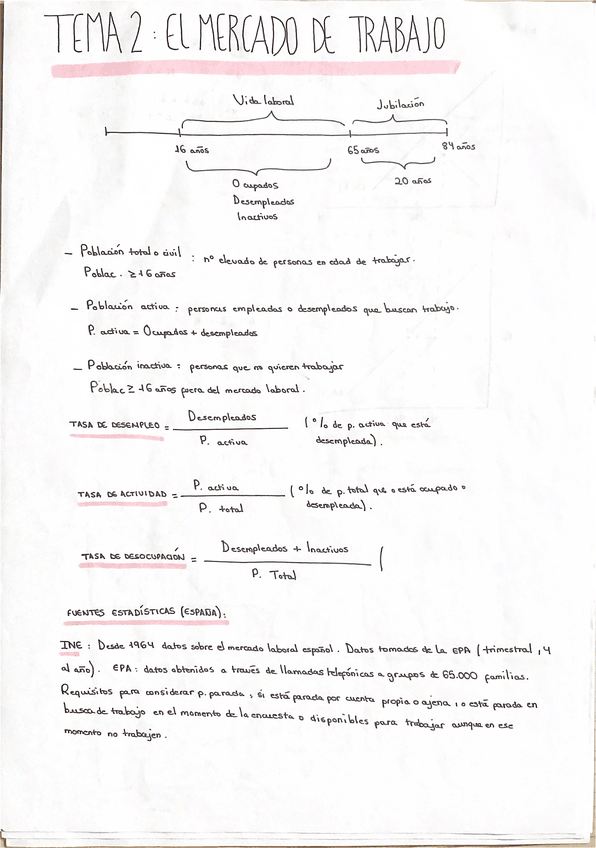 TEMA 2 : EL MERCADO DE TRABAJO
Vida laboral
Jubilación
16 años
65 años
84 años
Ocupados
Desempleados
Inactivos
20 años
– Población total o civil : nº elevado de personas en edad de trabajar.
Poblac. ≥ 16 años
– Población activa : personas empleadas o desempleados que buscan trabajo.
P. activa = Ocupados + desempleados
– Población inactiva : personas que no quieren trabajar
Poblac ≥ 16 años fuera del mercado laboral.
TASA DE DESEMPLEO = Desempleados / P. activa ( % de p. activa que está
desempleada).
TASA DE ACTIVIDAD = P. activa / P. total ( % de p. total que o está ocupado o
desempleada).
TASA DE DESOCUPACIÓN = Desempleados + Inactivos / P. Total (
FUENTES ESTADÍSTICAS (ESPAÑA):
INE : Desde 1964 datos sobre el mercado laboral español. Datos tomados de la EPA ( trimestral , 4
al año). EPA : datos obtenidos a través de llamadas telefónicas a grupos de 65.000 familias.
Requisitos para considerar p. parada , si está parada por cuenta propia o ajena , o está parada en
busca de trabajo en el momento de la encuesta o disponibles para trabajar aunque en ese
momento no trabajen .